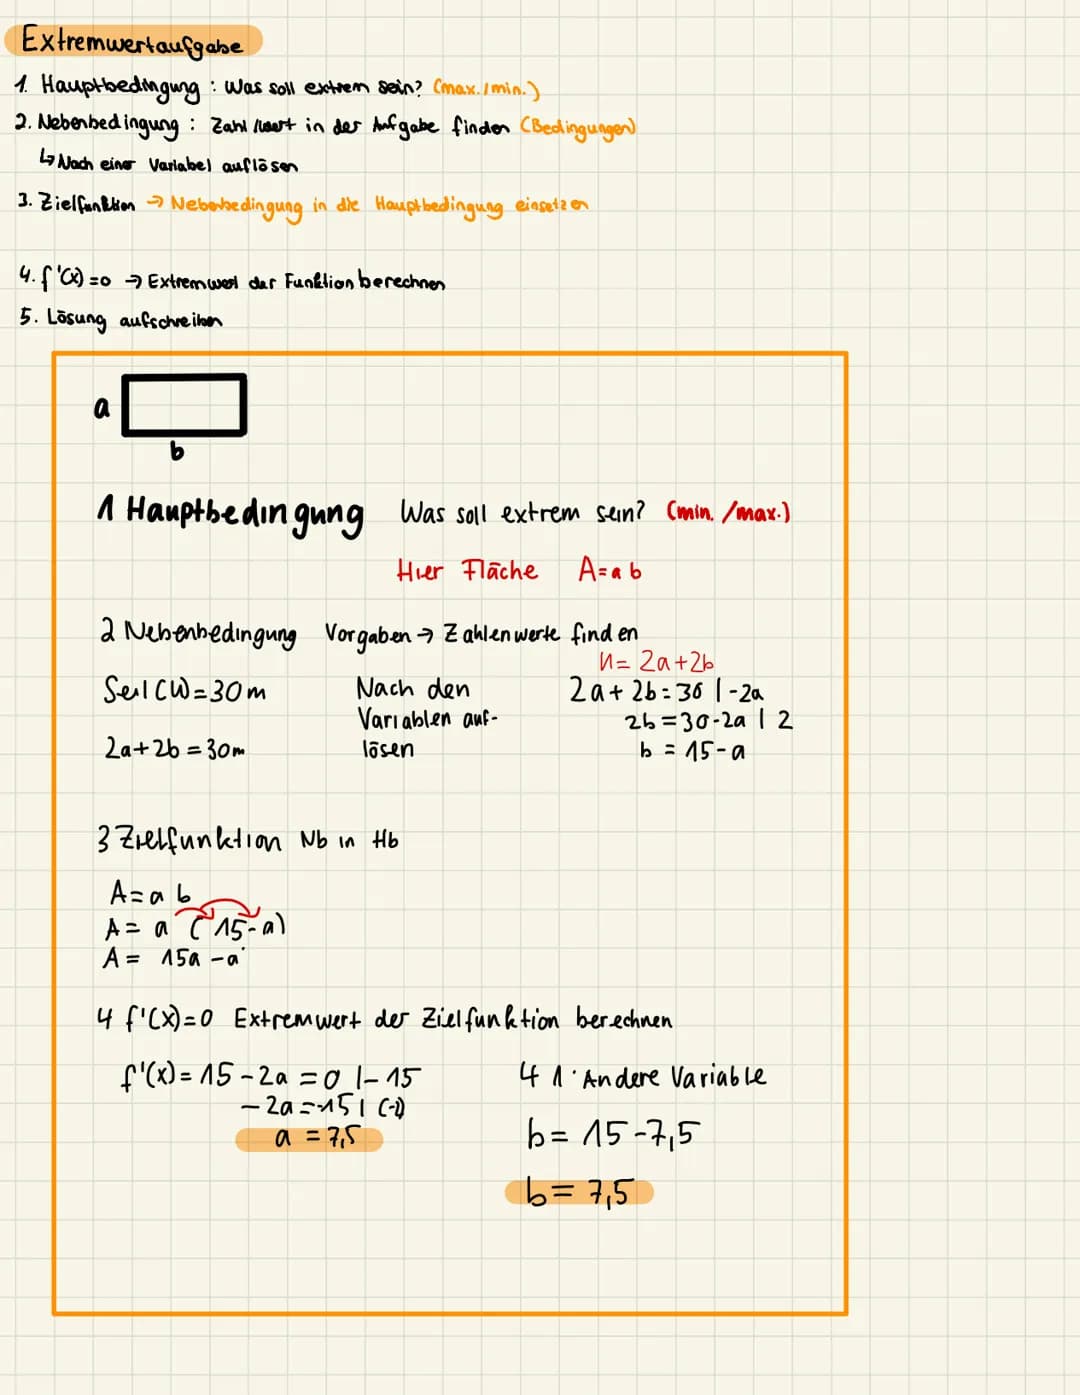 Extremwertaufgabe
1. Hauptbedingung : Was soll extrem sein? (max./min.)
2. Nebenbedingung : Zahl/wert in der Aufgabe finden (Bedingungen)
↳ Nach einer Variabel auflösen
3. Zielfunktion → Nebenbedingung in die Hauptbedingung einsetzen
4. f'(x)=0 → Extremwert der Funktion berechnen
5. Lösung aufschreiben
a
b
1 Hauptbedingung Was soll extrem sein? (min. /max.)
Hier Fläche A=a b
2 Nebenbedingung Vorgaben → Zahlenwerte finden
U= 2a+2b
Seil (U)=30m Nach den 2a+2b=30 |-2a
Variablen auf- 2b=30-2a | 2
2a+2b=30m lösen b = 15-a
3 Zielfunktion Nb in Hb
A=a b
A= a (15-a)
A= 15a -a²
4 f'(x)=0 Extremwert der Zielfunktion berechnen
f'(x)=15-2a=0 |-15 4 1. Andere Variable
-2a=-15| (-2)
a = 7,5 b= 15-7,5
b= 7,5